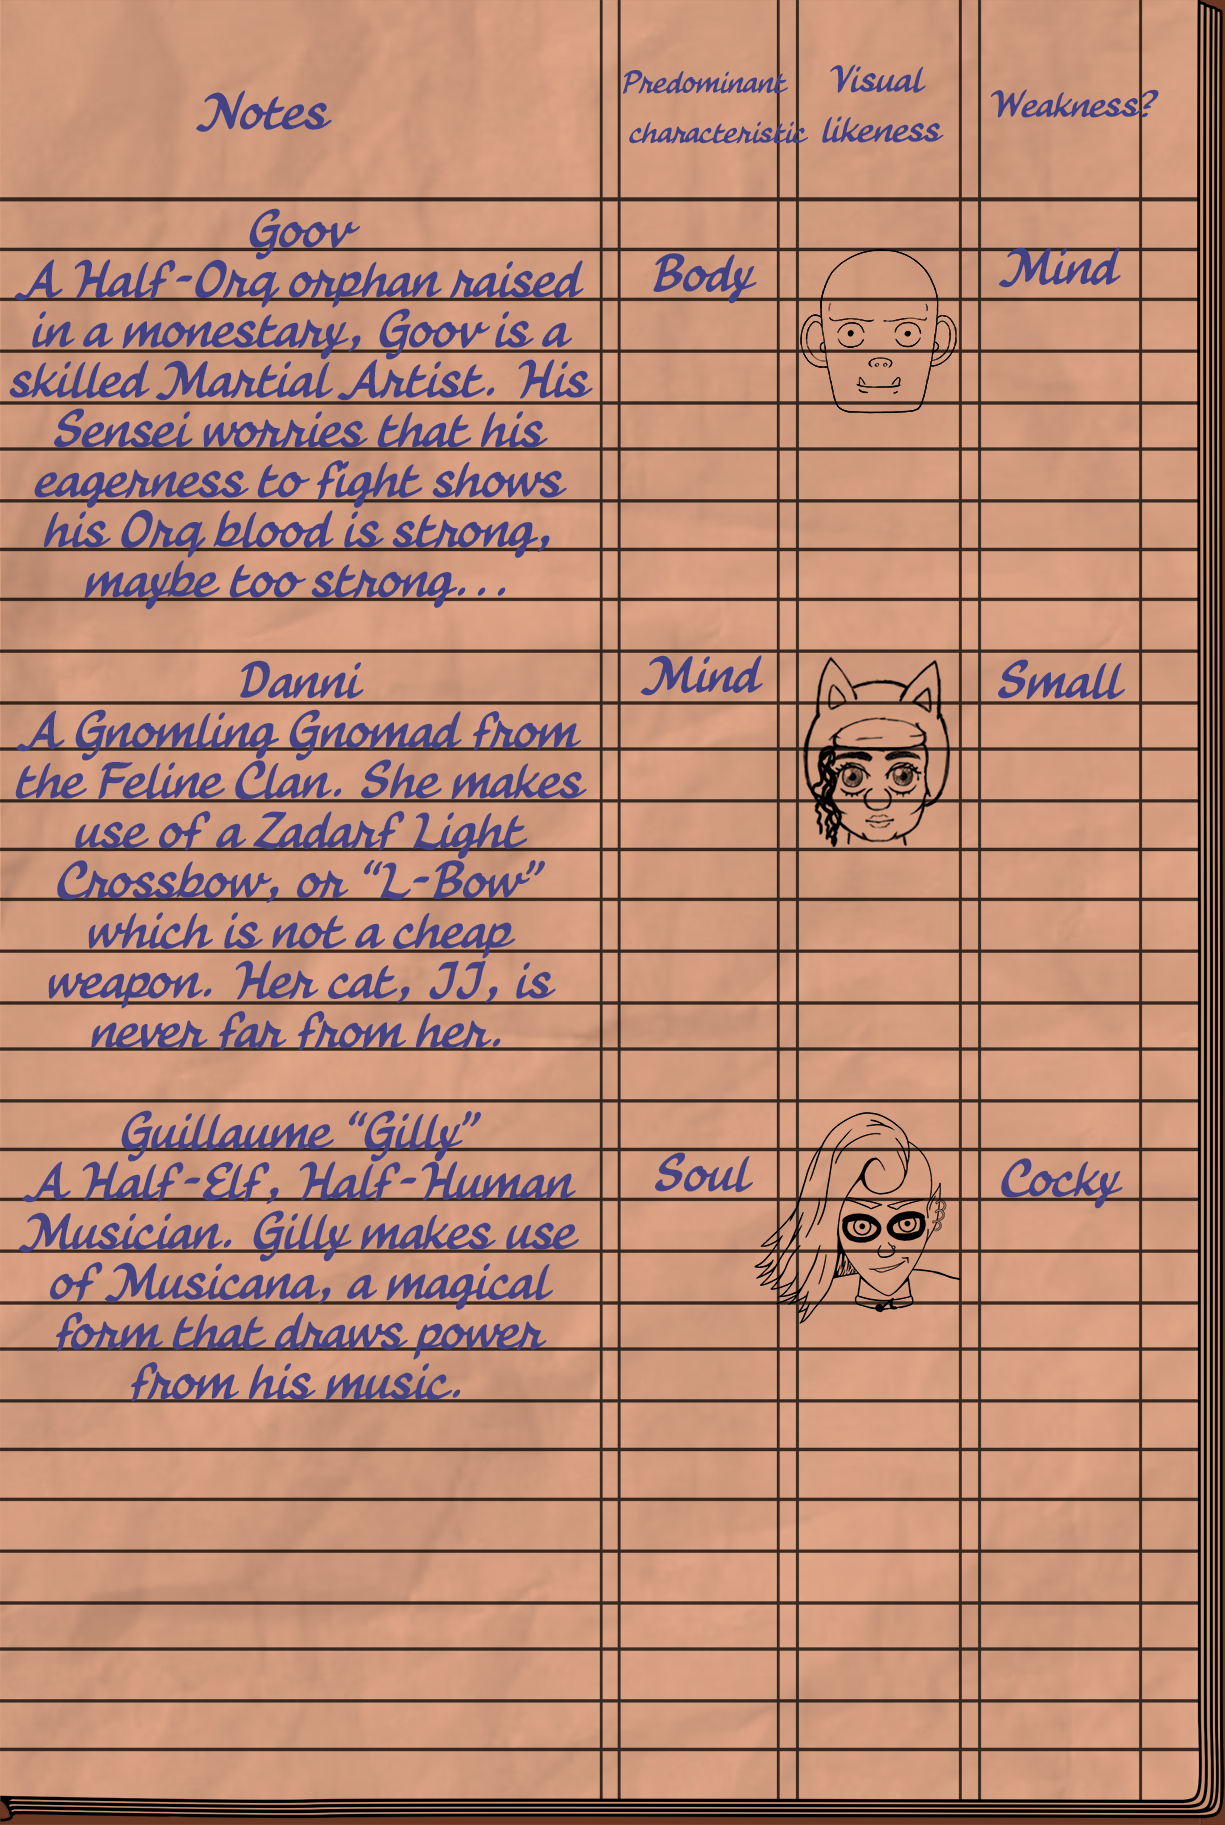 Notes
Predominant
characteristic
Visual
likeness
Weakness?
Goov
A Half-Orq orphan raised
in a monestary, Goov is a
skilled Martial Artist. His
Sensei worries that his
eagerness to fight shows
his Orq blood is strong,
maybe too strong...
Body
Mind
Danni
A Gnomling Gnomad from
the Feline Clan. She makes
use of a Zadarf Light
Crossbow, or “L-Bow”
which is not a cheap
weapon. Her cat, JJ, is
never far from her.
Mind
Small
Guillaume “Gilly”
A Half-Elf, Half-Human
Musician. Gilly makes use
of Musicana, a magical
form that draws power
from his music.
Soul
Cocky